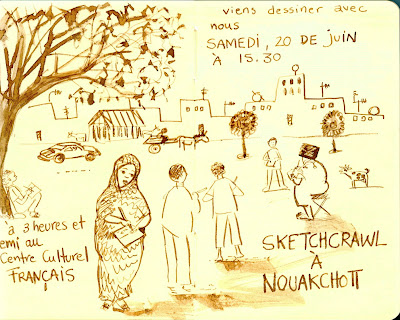 viens dessiner avec
nous
SAMEDI, 20 DE JUIN
A 15.30
à 3 heures et
emi au
Centre Culturel
FRANÇAIS
SKETCHCRAWL
À
NOUAKCHOTT